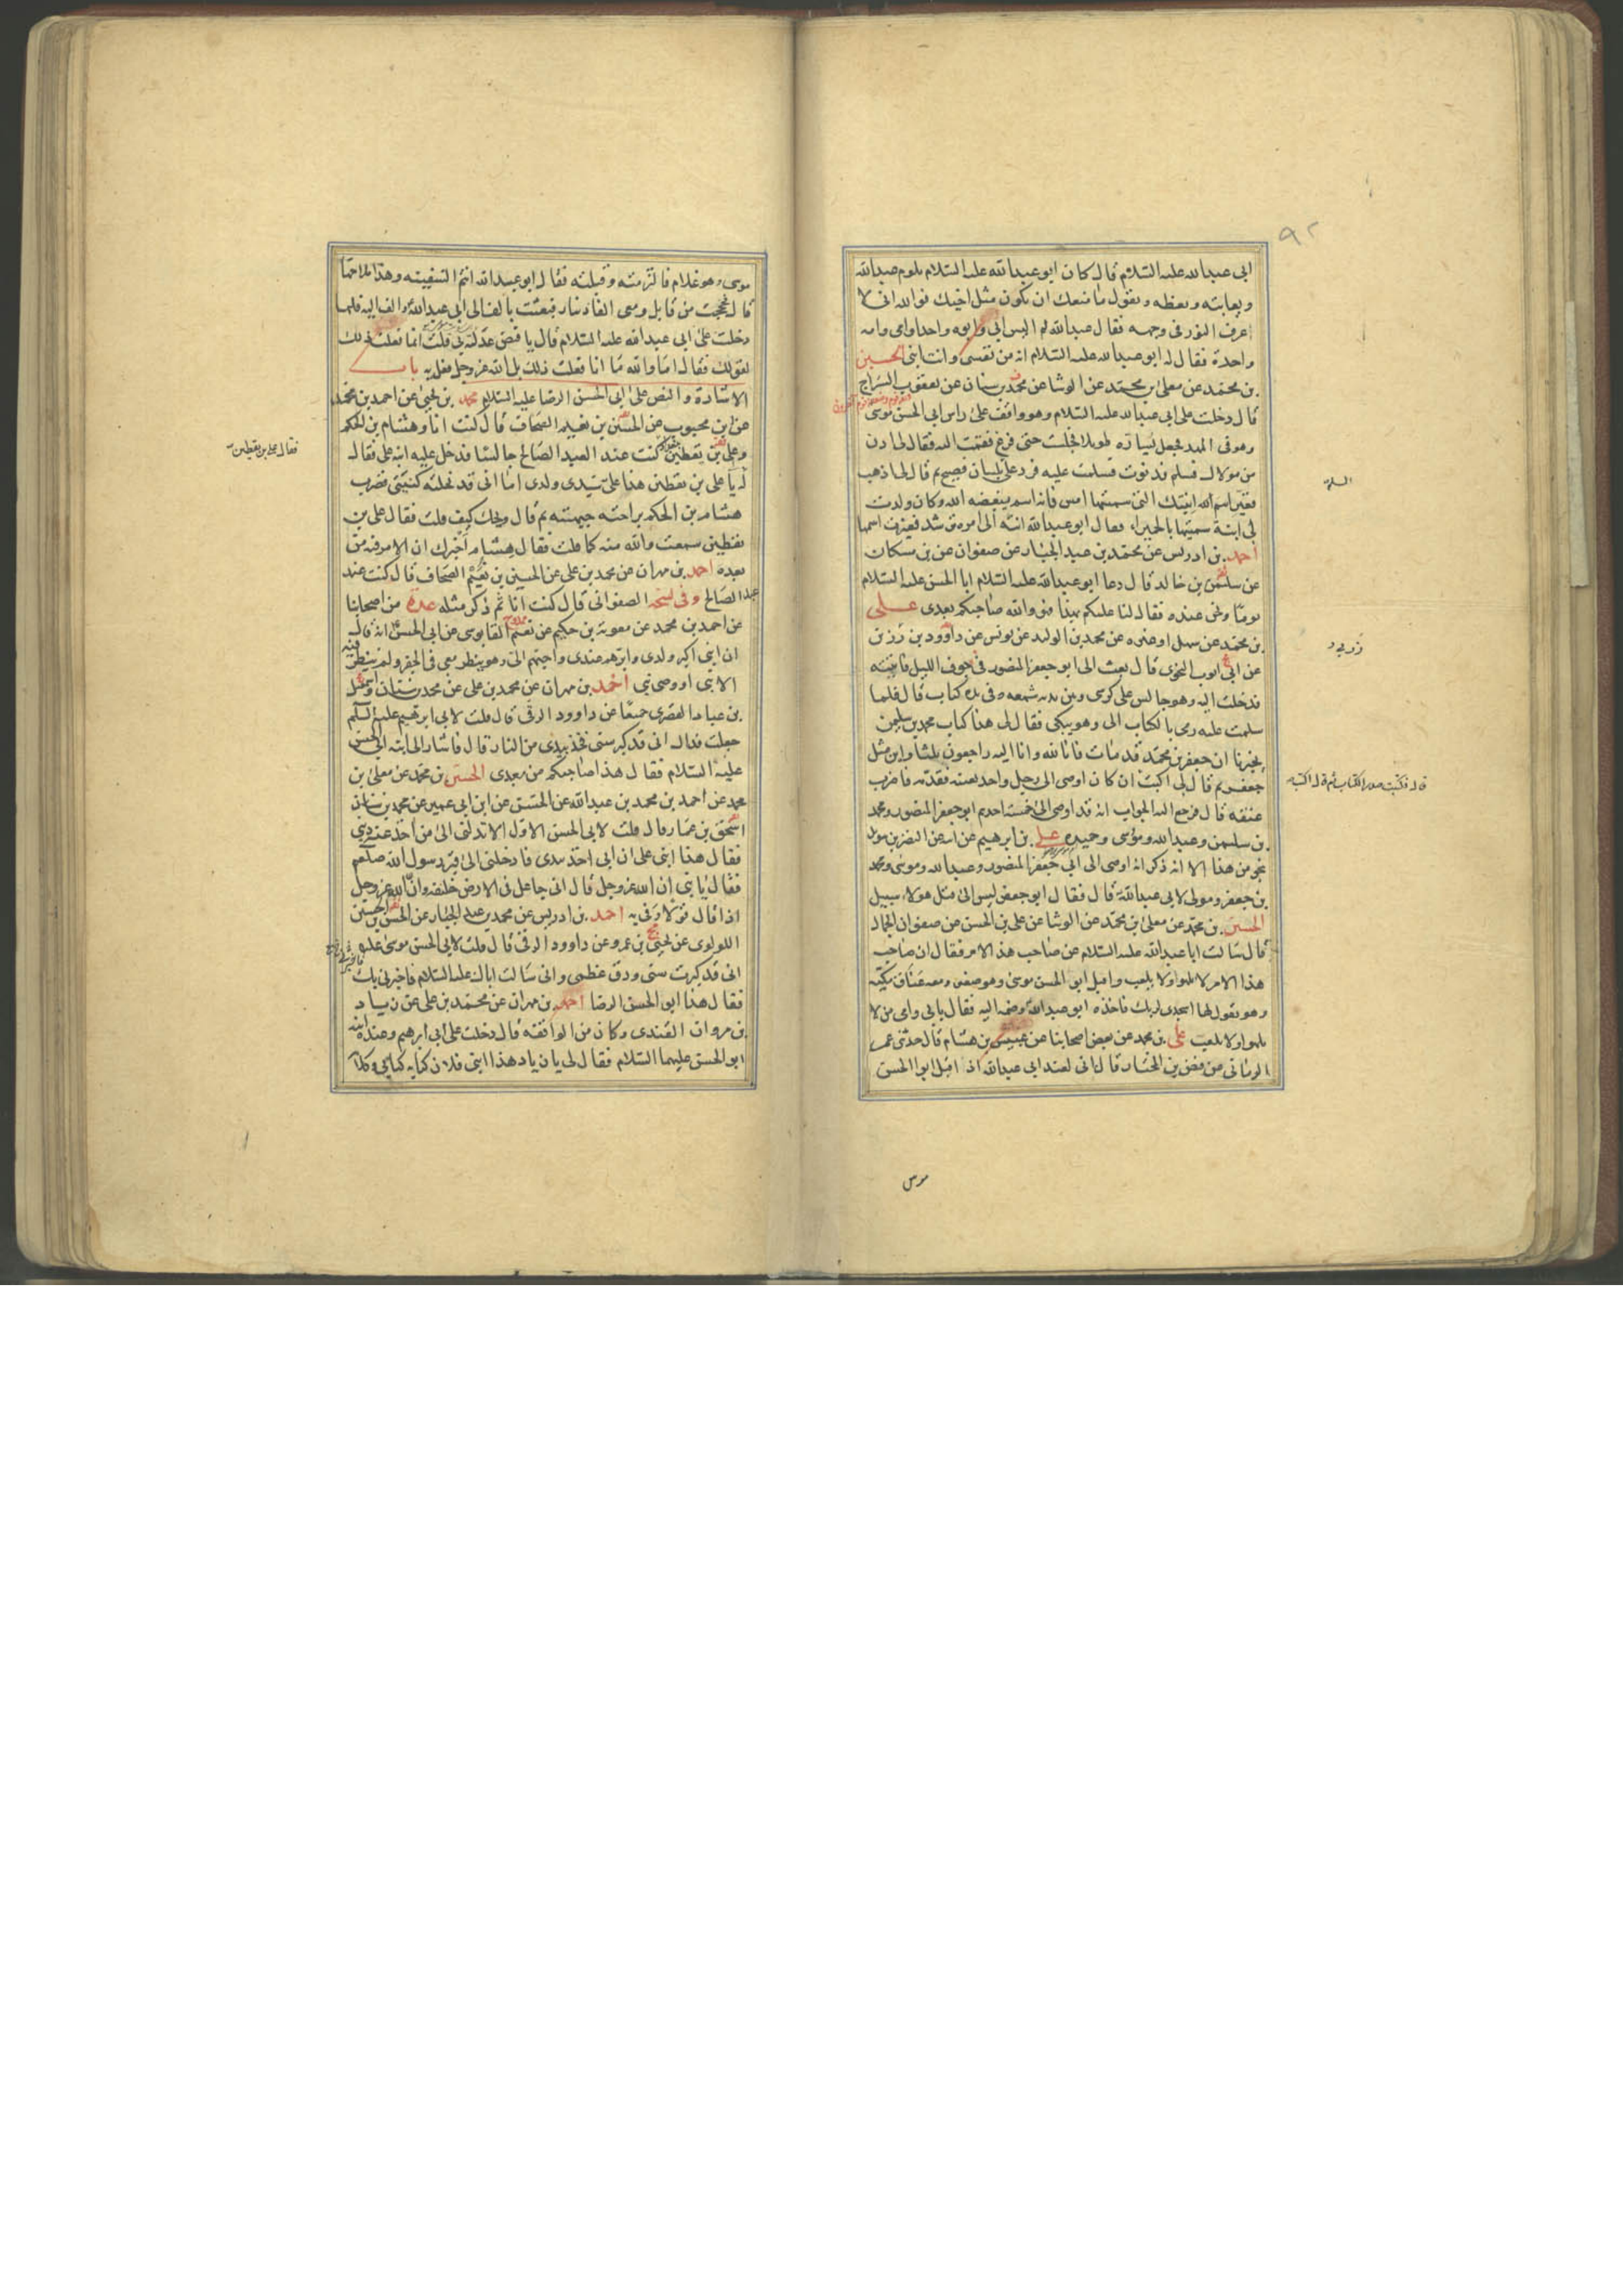 ٩٢
ابي عبد الله عليه السلام قال كان ابو عبد الله عليه السلام يلوم عبد الله
ويعاتبه ويعظه ويقول ما منعك ان تكون مثل اخيك فوالله اني لا
اعرف النور في وجهه فقال عبد الله لم اليس ابي وابوه واحدا وامي وامه
واحدة فقال له ابو عبد الله عليه السلام انه من نفسي وانت ابني الحسين
بن محمد عن معلى بن محمد عن الوشا عن محمد بن سنان عن يعقوب السراج
قال دخلت على ابي عبد الله عليه السلام وهو واقف على راس ابي الحسن موسى
وهو في المهد فجعل يساره طويلا فجلست حتى فرغ فقمت اليه فقال لي ادن
من مولاك فسلم فدنوت فسلمت عليه فرد علي بلسان فصيح ثم قال لي اذهب
فغير اسم ابنتك التي سميتها امس فانه اسم يبغضه الله وكان ولدت
لي ابنة سميتها بالحميراء فقال ابو عبد الله انته الى امره ترشد فغيرت اسمها
احمد بن ادريس عن محمد بن عبد الجبار عن صفوان عن بن مسكان
عن سليمن بن خالد قال دعا ابو عبد الله عليه السلام ابا الحسن عليه السلام
يوما ونحن عنده فقال لنا عليكم بهذا فهو والله صاحبكم بعدي علي
بن محمد عن سهل او غيره عن محمد بن الوليد عن يونس عن داوود بن زربن
عن ابي ايوب النحوي قال بعث الي ابو جعفر المنصور في جوف الليل فاتيته
فدخلت اليه وهو جالس على كرسي وبين يديه شمعه وفي يده كتاب قال فلما
سلمت عليه رمى بالكتاب الي وهو يبكي فقال لي هذا كتاب محمد بن سليمن
يخبرنا ان جعفر بن محمد قد مات فانا لله وانا اليه راجعون ثلثا واين مثل
جعفر ثم قال لي اكتب ان كان اوصى الى رجل واحد بعينه فقدمه فاضرب
عنقه قال فرجع اليه الجواب انه قد اوصى الى خمسة احدهم ابو جعفر المنصور ومحمد
بن سليمن وعبد الله وموسى وحميده علي بن ابرهيم عن ابيه عن النضر بن سويد
نحو من هذا الا انه ذكر انه اوصى الى ابي جعفر المنصور وعبد الله وموسى ومحمد
بن جعفر ومولى لابي عبد الله قال فقال ابو جعفر ليس الى قتل هولاء سبيل
الحسين بن محمد عن معلى بن محمد عن الوشا عن علي بن الحسن عن صفوان الجمال
قال سالت ابا عبد الله عليه السلام عن صاحب هذا الامر فقال ان صاحب
هذا الامر لا يلهو ولا يلعب واقبل ابو الحسن موسى وهو صغير ومعه عناق مكية
وهو يقول لها اسجدي لربك فاخذه ابو عبد الله وضمه اليه فقال بابي وامي من لا
يلهو ولا يلعب علي بن محمد عن بعض اصحابنا عن عبيس بن هشام قال حدثني عمر
الرماني عن فيض بن المختار قال اني لعند ابي عبد الله اذ اقبل ابو الحسن
زربي د
قال فكتبت صدر الكتاب ثم قال اكتب
موسى
موسى وهو غلام فالتزمته وقبلته فقال ابو عبد الله انتم السفينه وهذا ملاحها
قال فحججت من قابل ومعي الفا دينار فبعثت بالف الى ابي عبد الله والف اليه فلما
دخلت على ابي عبد الله عليه السلام قال يا فيض عدلته بي قلت انما فعلت ذلك
لقولك فقال اما والله ما انا فعلت ذلك بل الله عز وجل فعله به باب
الاشارة والنص على ابي الحسن الرضا عليه السلام محمد بن يحيى عن احمد بن محمد
عن ابن محبوب عن الحسين بن نعيم الصحاف قال كنت انا وهشام بن الحكم
وعلي بن يقطين ببغداد كنت عند العبد الصالح جالسا فدخل عليه ابنه علي فقال
لي يا علي بن يقطين هذا علي سيدي ولدي اما اني قد نحلته كنيتي فضرب
هشام بن الحكم براحته جبهته ثم قال ويحك كيف قلت فقال علي بن
يقطين سمعت والله منه كما قلت فقال هشام اخبرك ان الامر فيه من
بعده احمد بن مهران عن محمد بن علي عن الحسين بن نعيم الصحاف قال كنت عند
عبد الصالح وفي نسخه الصفواني قال كنت انا ثم ذكر مثله عدة من اصحابنا
عن احمد بن محمد عن معوية بن حكيم عن نعيم القابوسي عن ابي الحسن انه قال
ان ابني اكبر ولدي وابرهم عندي واحبهم الي وهو ينظر معي في الجفر ولم ينظر فيه
الا نبي او وصي نبي احمد بن مهران عن محمد بن علي عن محمد بن سنان واسمعيل
بن عباد القصري جميعا عن داوود الرقي قال قلت لابي ابرهيم عليه السلم
جعلت فداك اني قد كبر سني فخذ بيدي من النار قال فاشار الى ابنه ابي الحسن
عليه السلام فقال هذا صاحبكم من بعدي الحسين بن محمد عن معلى بن
محمد عن احمد بن محمد بن عبد الله عن الحسن عن ابن ابي عمير عن محمد بن
اسحق بن عمار قال قلت لابي الحسن الاول الا تدلني الى من اخذ عنه ديني
فقال هذا ابني علي ان ابي اخذ بيدي فادخلني الى قبر رسول الله صلعم
فقال يا بني ان الله عز وجل قال اني جاعل في الارض خليفه وان الله عز وجل
اذا قال قولا وفى به احمد بن ادريس عن محمد بن عبد الجبار عن الحسن بن الحسين
اللولوي عن يحيى بن عمرو عن داوود الرقي قال قلت لابي الحسن موسى
اني قد كبرت سني ودق عظمي واني سالت اباك عليه السلام فاخبرني بك
فقال هذا ابو الحسن الرضا احمد بن مهران عن محمد بن علي عن زياد
بن مروان القندي وكان من الواقفه قال دخلت على ابي ابرهيم وعنده ابنه
ابو الحسن عليهما السلام فقال لي يا زياد هذا ابني فلان كتابه كتابي وكلا
فقال علي بن يقطين